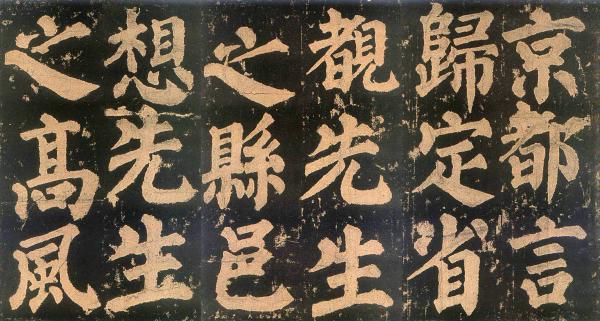 京都言
歸定省
覩先生
之縣邑
想先生
之高風